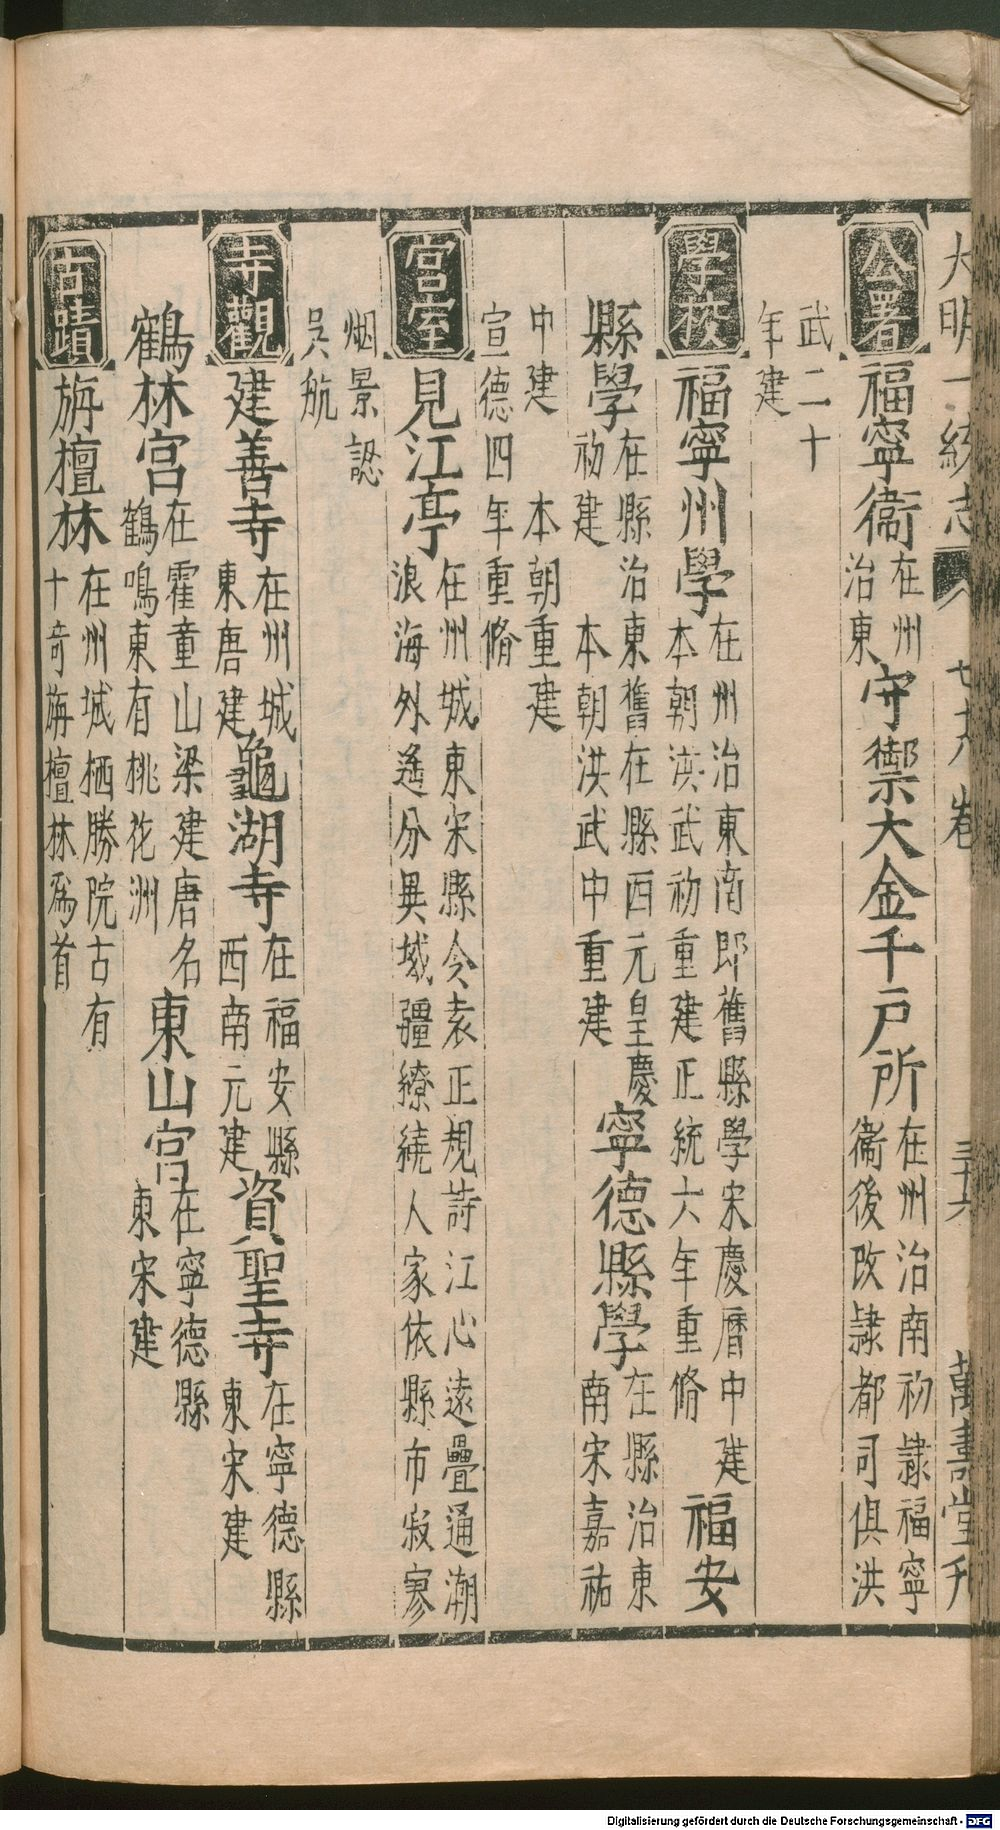 大明一統志 七十八卷 三十六 萬壽堂刊
公署 福寧衞在州治東守禦大金千戸所在州治南初隷福寧衞後改隷都司俱洪
武二十年建
學校 福寧州學在州治東南即舊縣學宋慶曆中建本朝洪武初重建正統六年重脩福安
縣學在縣治東舊在縣西元皇慶初建本朝洪武中重建寧德縣學在縣治東南宋嘉祐
中建本朝重建宣德四年重脩
宮室 見江亭在州城東宋縣令袁正規詩江心遠疊通潮浪海外遙分異域疆繚繞人家依縣市寂寥
烟景認吳航
寺觀 建善寺在州城東唐建龜湖寺在福安縣西南元建資聖寺在寧德縣東宋建
鶴林宮在霍童山梁建唐名鶴鳴東有桃花洲東山宮在寧德縣東宋建
古蹟 旃檀林在州城栖勝院古有十奇旃檀林爲首
Digitalisierung gefördert durch die Deutsche Forschungsgemeinschaft - DFG